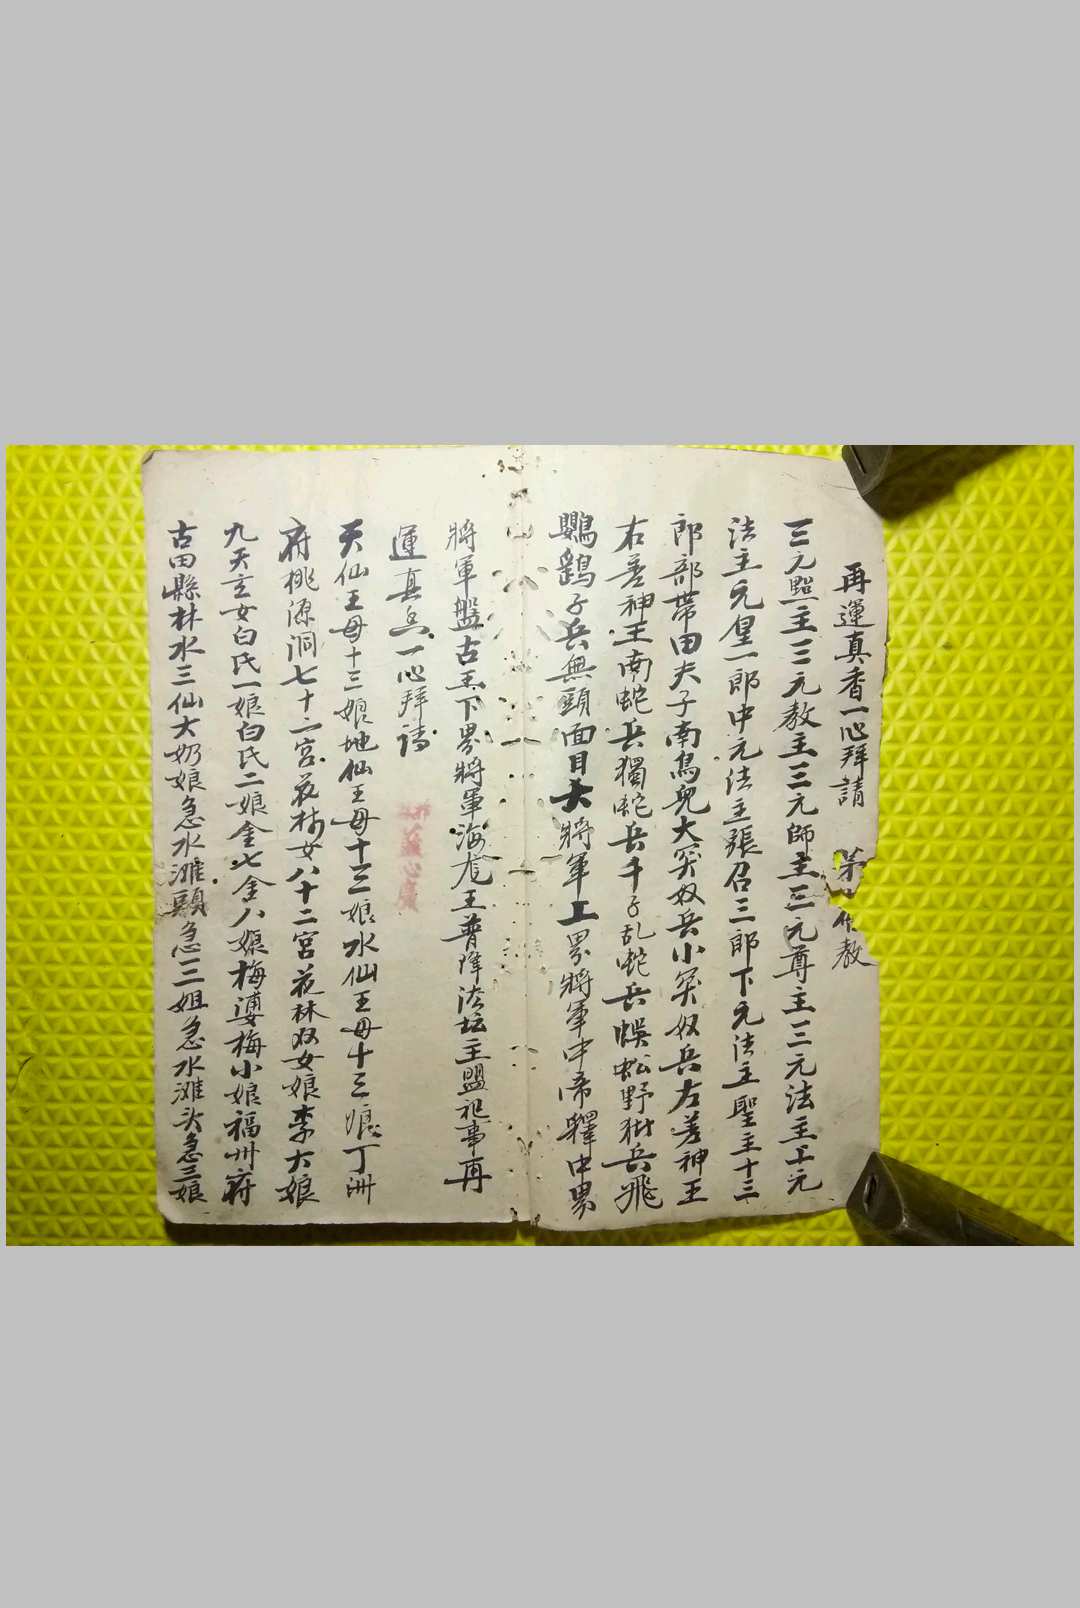 再運真香一心拜請 茅 教
三元點主三元教主三元師主三元尊主三元法主上元
法主元皇一郎中元法主張召三郎下元法主聖主十三
郎部帶田夫子南鳥兜大哭奴兵小哭奴兵左差神王
右差神王南蛇兵獨蛇兵千子乱蛇兵蜈蚣野狱兵飛
鸚鷂子兵無頭面目大將軍上界將軍中帝釋中界
將軍盤古王下界將軍海尨王普降法坛主盟祀事再
運真香一心拜請
天仙王母十三娘地仙王母十三娘水仙王母十三娘丁洲
府桃源洞七十二宮花林女八十二宮花林双女娘李大娘
九天玄女白氏一娘白氏二娘金七金八娘梅婆梅小娘福州府
古田縣林水三仙大奶娘急水滩頭急二姐急水滩头急三娘